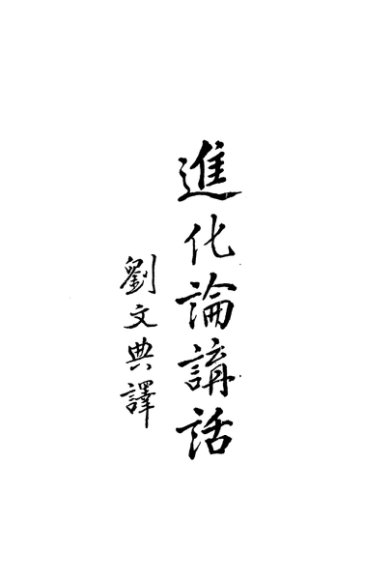 進化論講話
劉文典譯